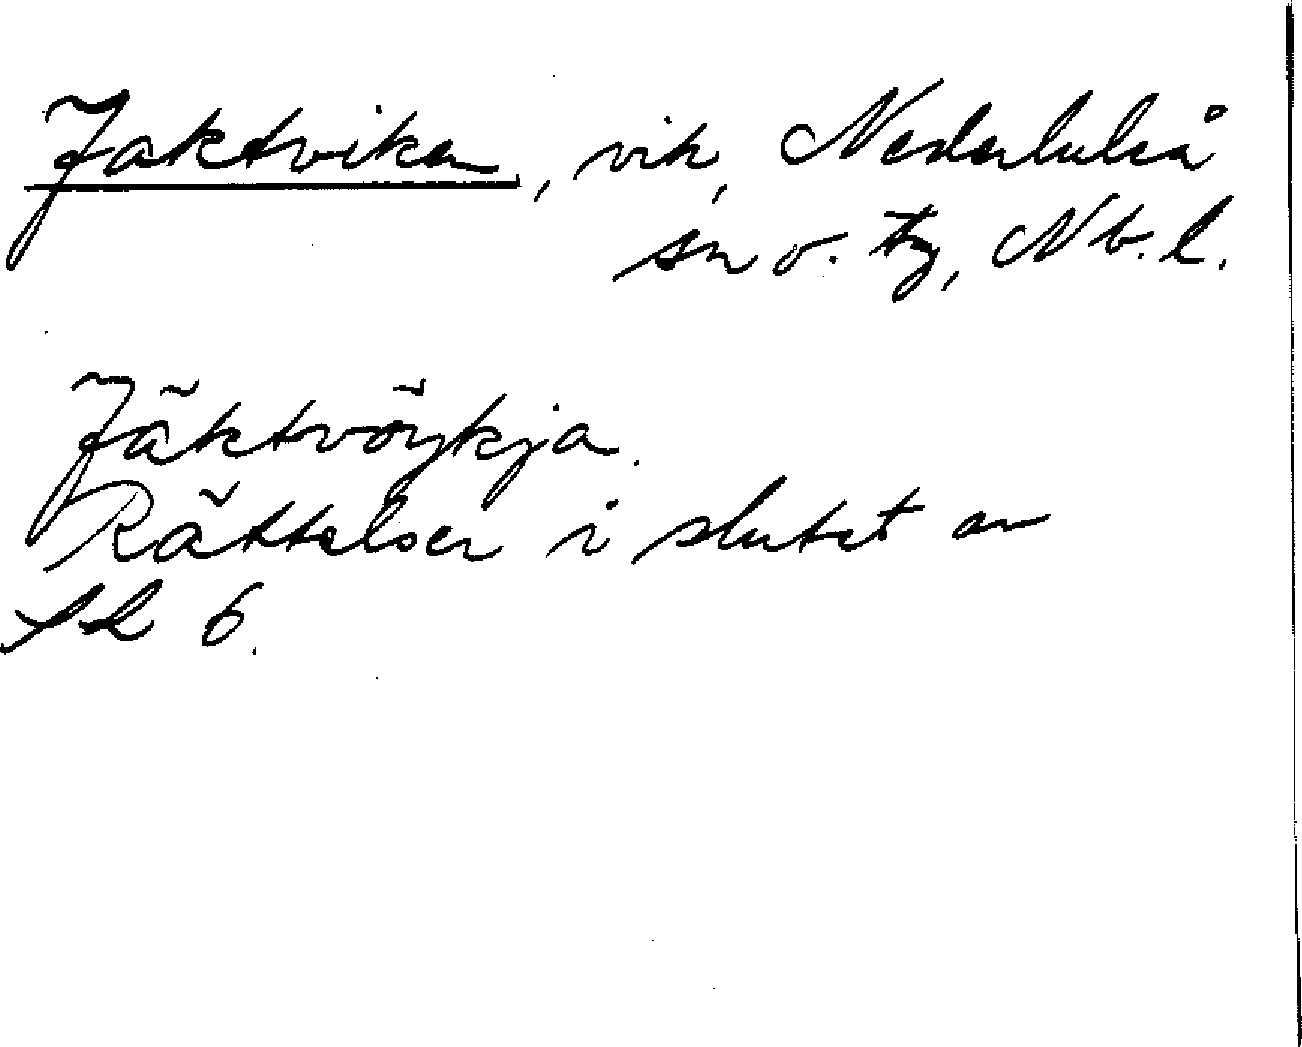 Jaktviken, vik, Nederluleå
sn o. tg, Nb.l.
Jäktvöykja.
Rättelser i slutet av
6.